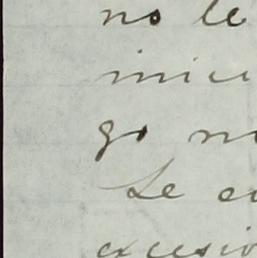 no le
inicu
go no
Le e
excesiv